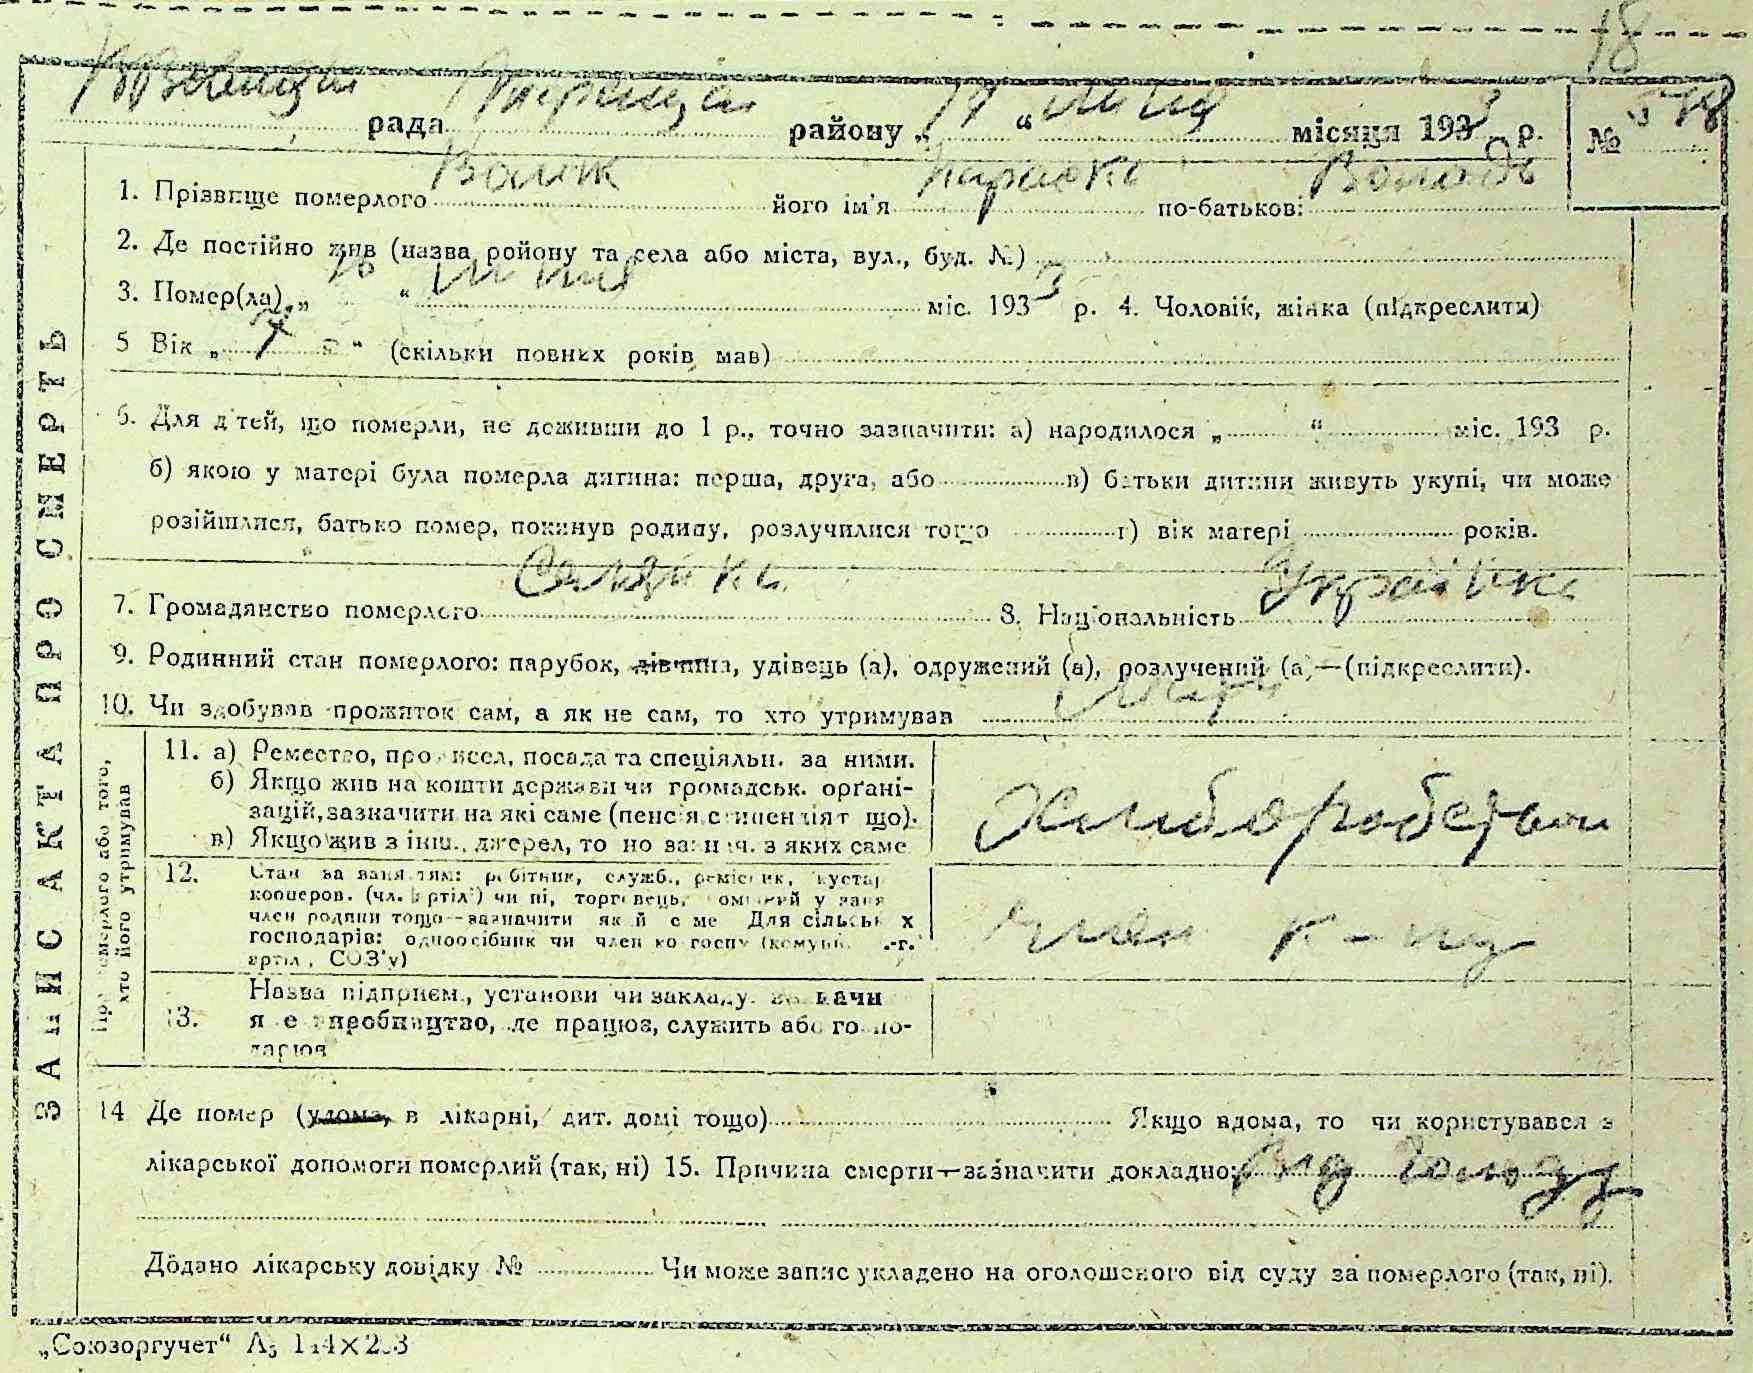 18
рада району „ 17 “ липця місяця 1933 р. № 578
1. Прізвище померлого його ім'я Параска по-батькові:
2. Де постійно жив (назва ройону та села або міста, вул., буд. №)
3. Помер(ла) „ 16 “ липця міс. 1933 р. 4. Чоловік, жінка (підкреслити)
5 Вік „ 7 “ (скільки повних років мав)
6. Для дітей, що померли, не доживши до 1 р., точно зазначити: а) народилося „ “ міс. 193 р.
б) якою у матері була померла дитина: перша, друга, або в) батьки дитини живуть укупі, чи може
розійшлися, батько помер, покинув родину, розлучилися тощо г) вік матері років.
7. Громадянство померлого 8. Національність Українка
9. Родинний стан померлого: парубок, дівчина, удівець (а), одружений (а), розлучений (а)—(підкреслити).
10. Чи здобував прожиток сам, а як не сам, то хто утримував
ЗАПИС АКТА ПРО СМЕРТЬ
Про померлого або того,
хто його утримував
11. а) Ремество, промисел, посада та спеціяльн. за ними.
б) Якщо жив на кошти держави чи громадськ. орґані-
зацій, зазначити на які саме (пенсія, стипендія т що).
в) Якщо жив з інш. джерел, то по зазнач. з яких саме
Хліборобством
12. Стан за заняттям: робітник, служб., ремісник, кустар
кооперов. (чл. артіл') чи ні, торговець,
член родини тощо—зазначити який саме Для сільськ х
господарів: одноосібник чи член ко госпу (комуни, .-г.
артіл , СОЗ'у)
член к-пу
13. Назва підприєм., установи чи закладу.
я е виробництво, де працює, служить або го по-
дарює
14 Де помер (удома, в лікарні, дит. домі тощо) Якщо вдома, то чи користувався з
лікарської допомоги померлий (так, ні) 15. Причина смерти—зазначити докладно: Від голоду
Додано лікарську довідку № Чи може запис укладено на оголошеного від суду за померлого (так, ні).
„Союзоргучет“ А5